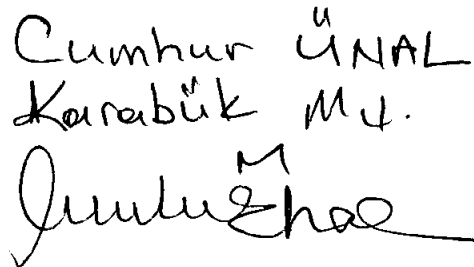 Cumhur ÜNAL
Karabük Mv.